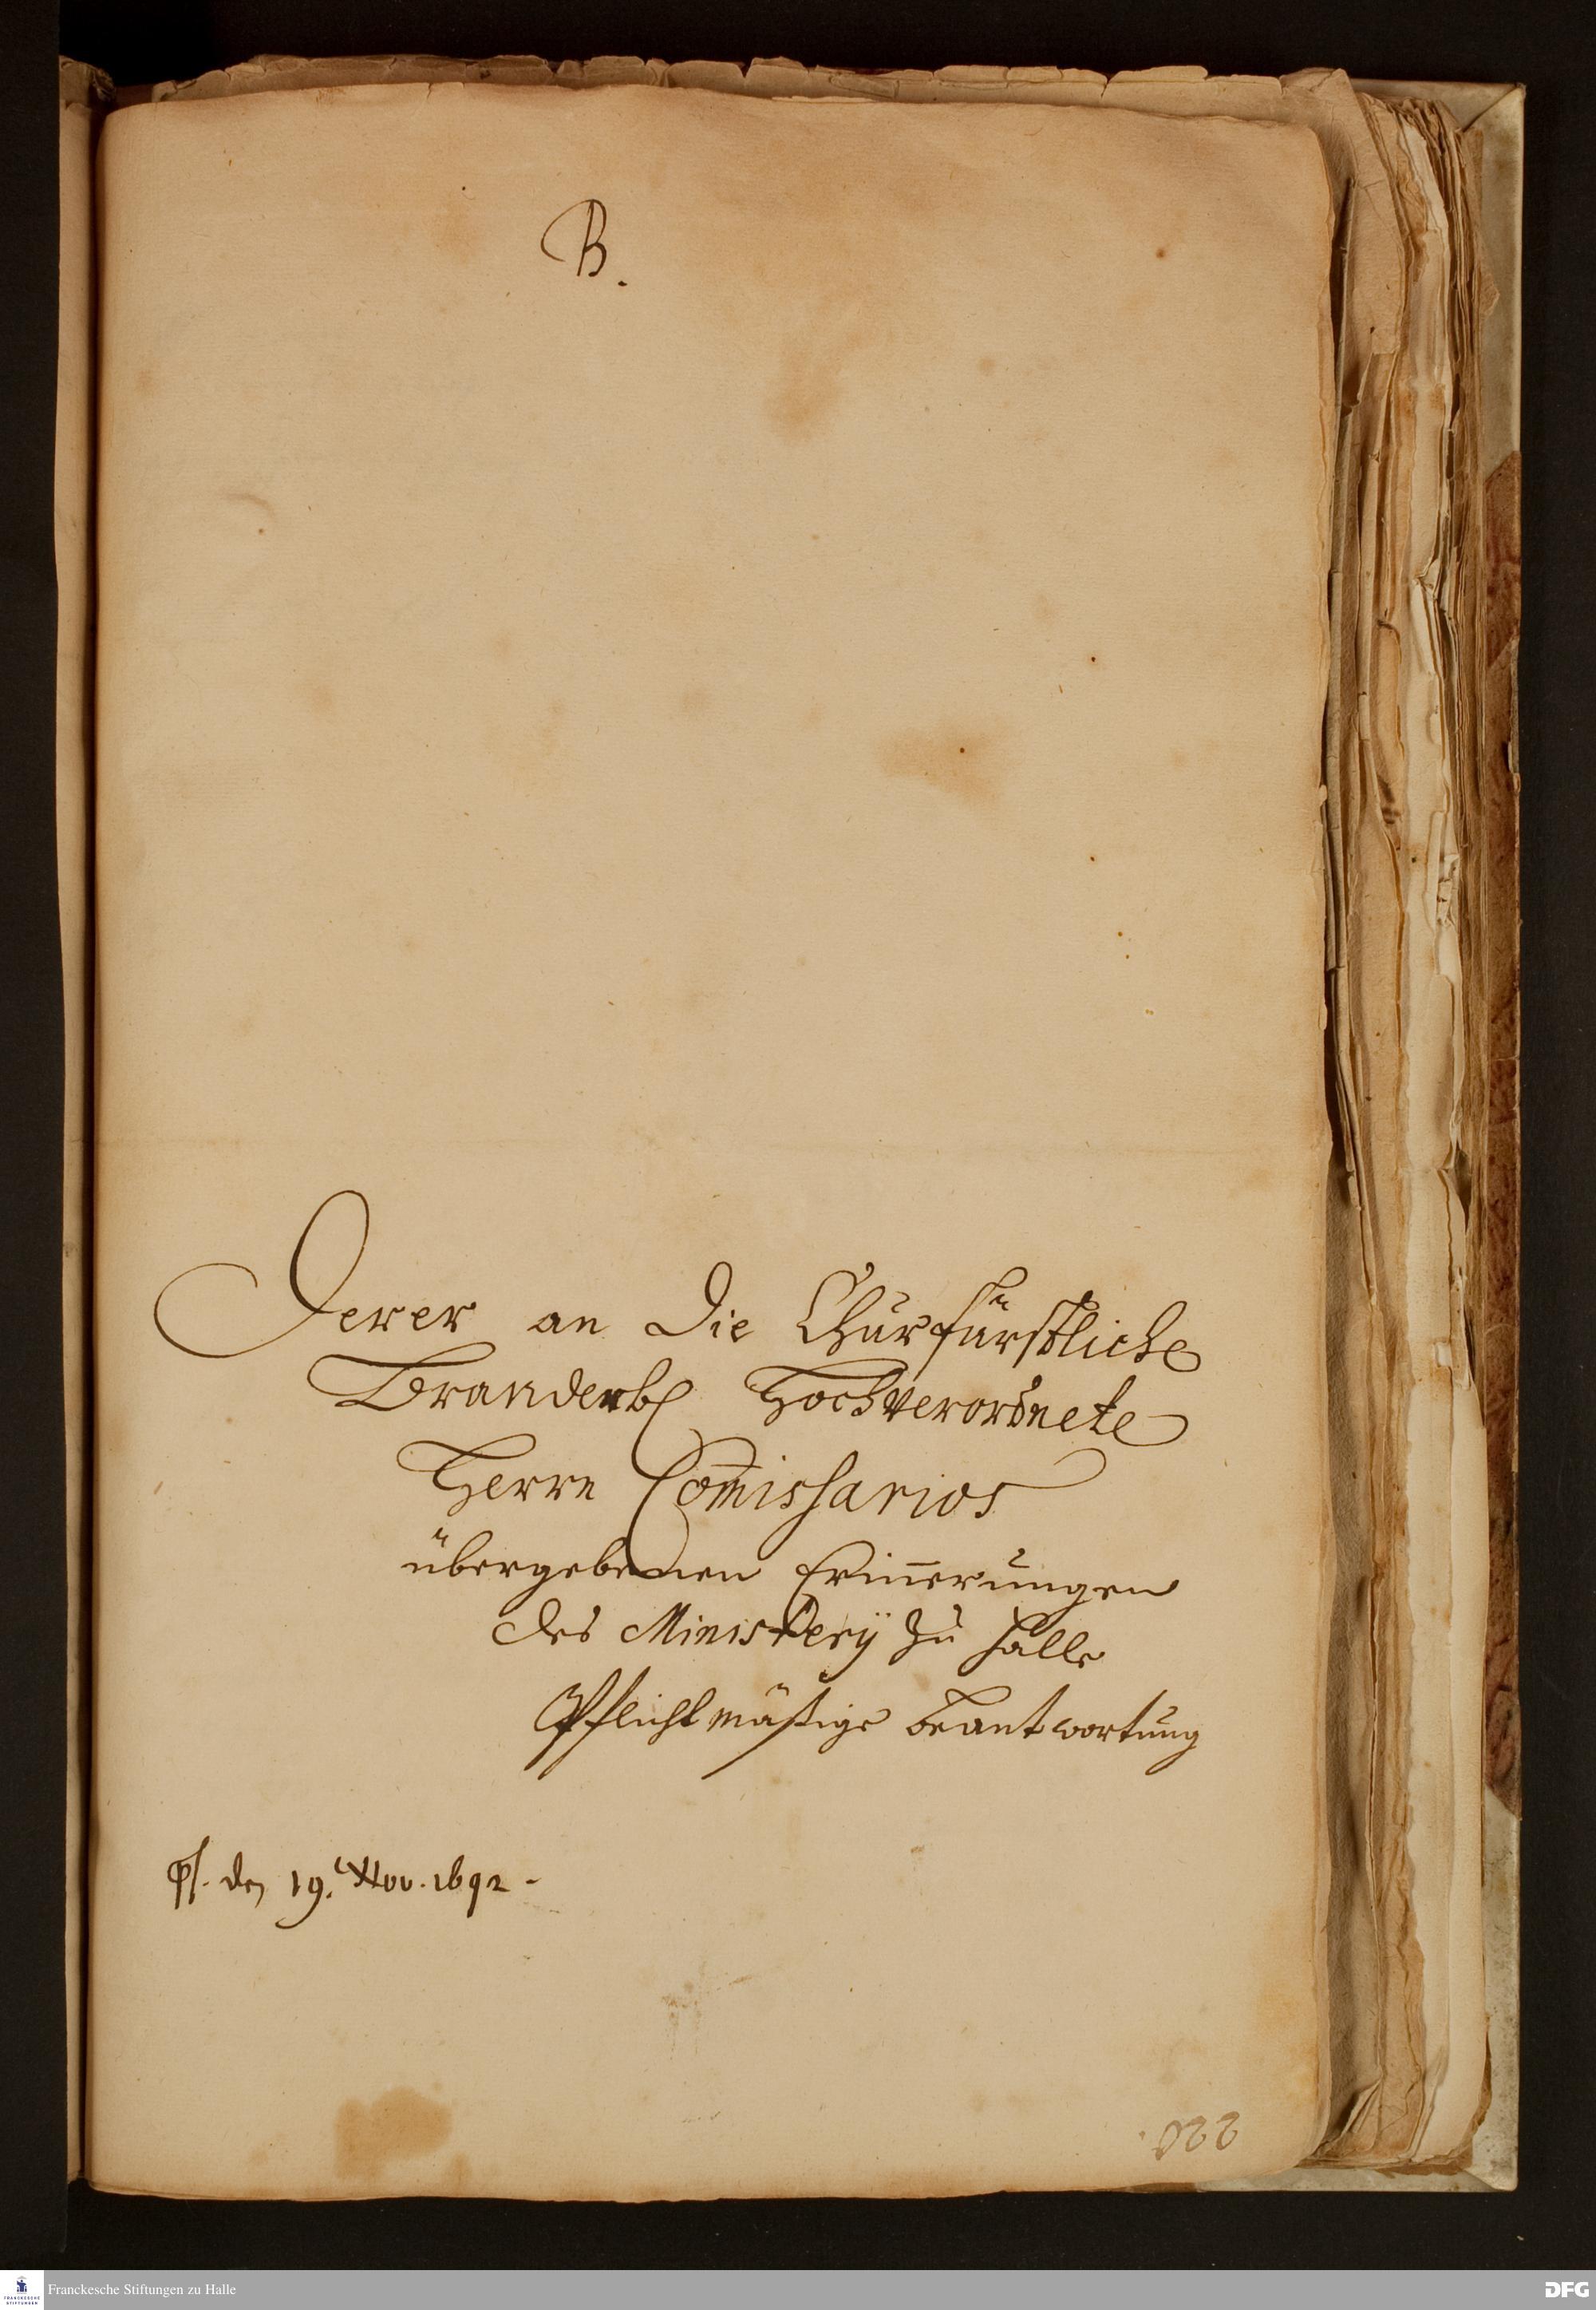 B.
Derer an die Churfürstliche
Brandenb. Hochverordnete
Herrn Com̄issarios
übergebenen Erin̄erungen
des Ministerij zu Halle
Pflichtmäßige Beantwortung
ps. den 19. Nov. 1692.
Franckesche Stiftungen zu Halle
FRANCKESCHE
STIFTUNGEN
DFG